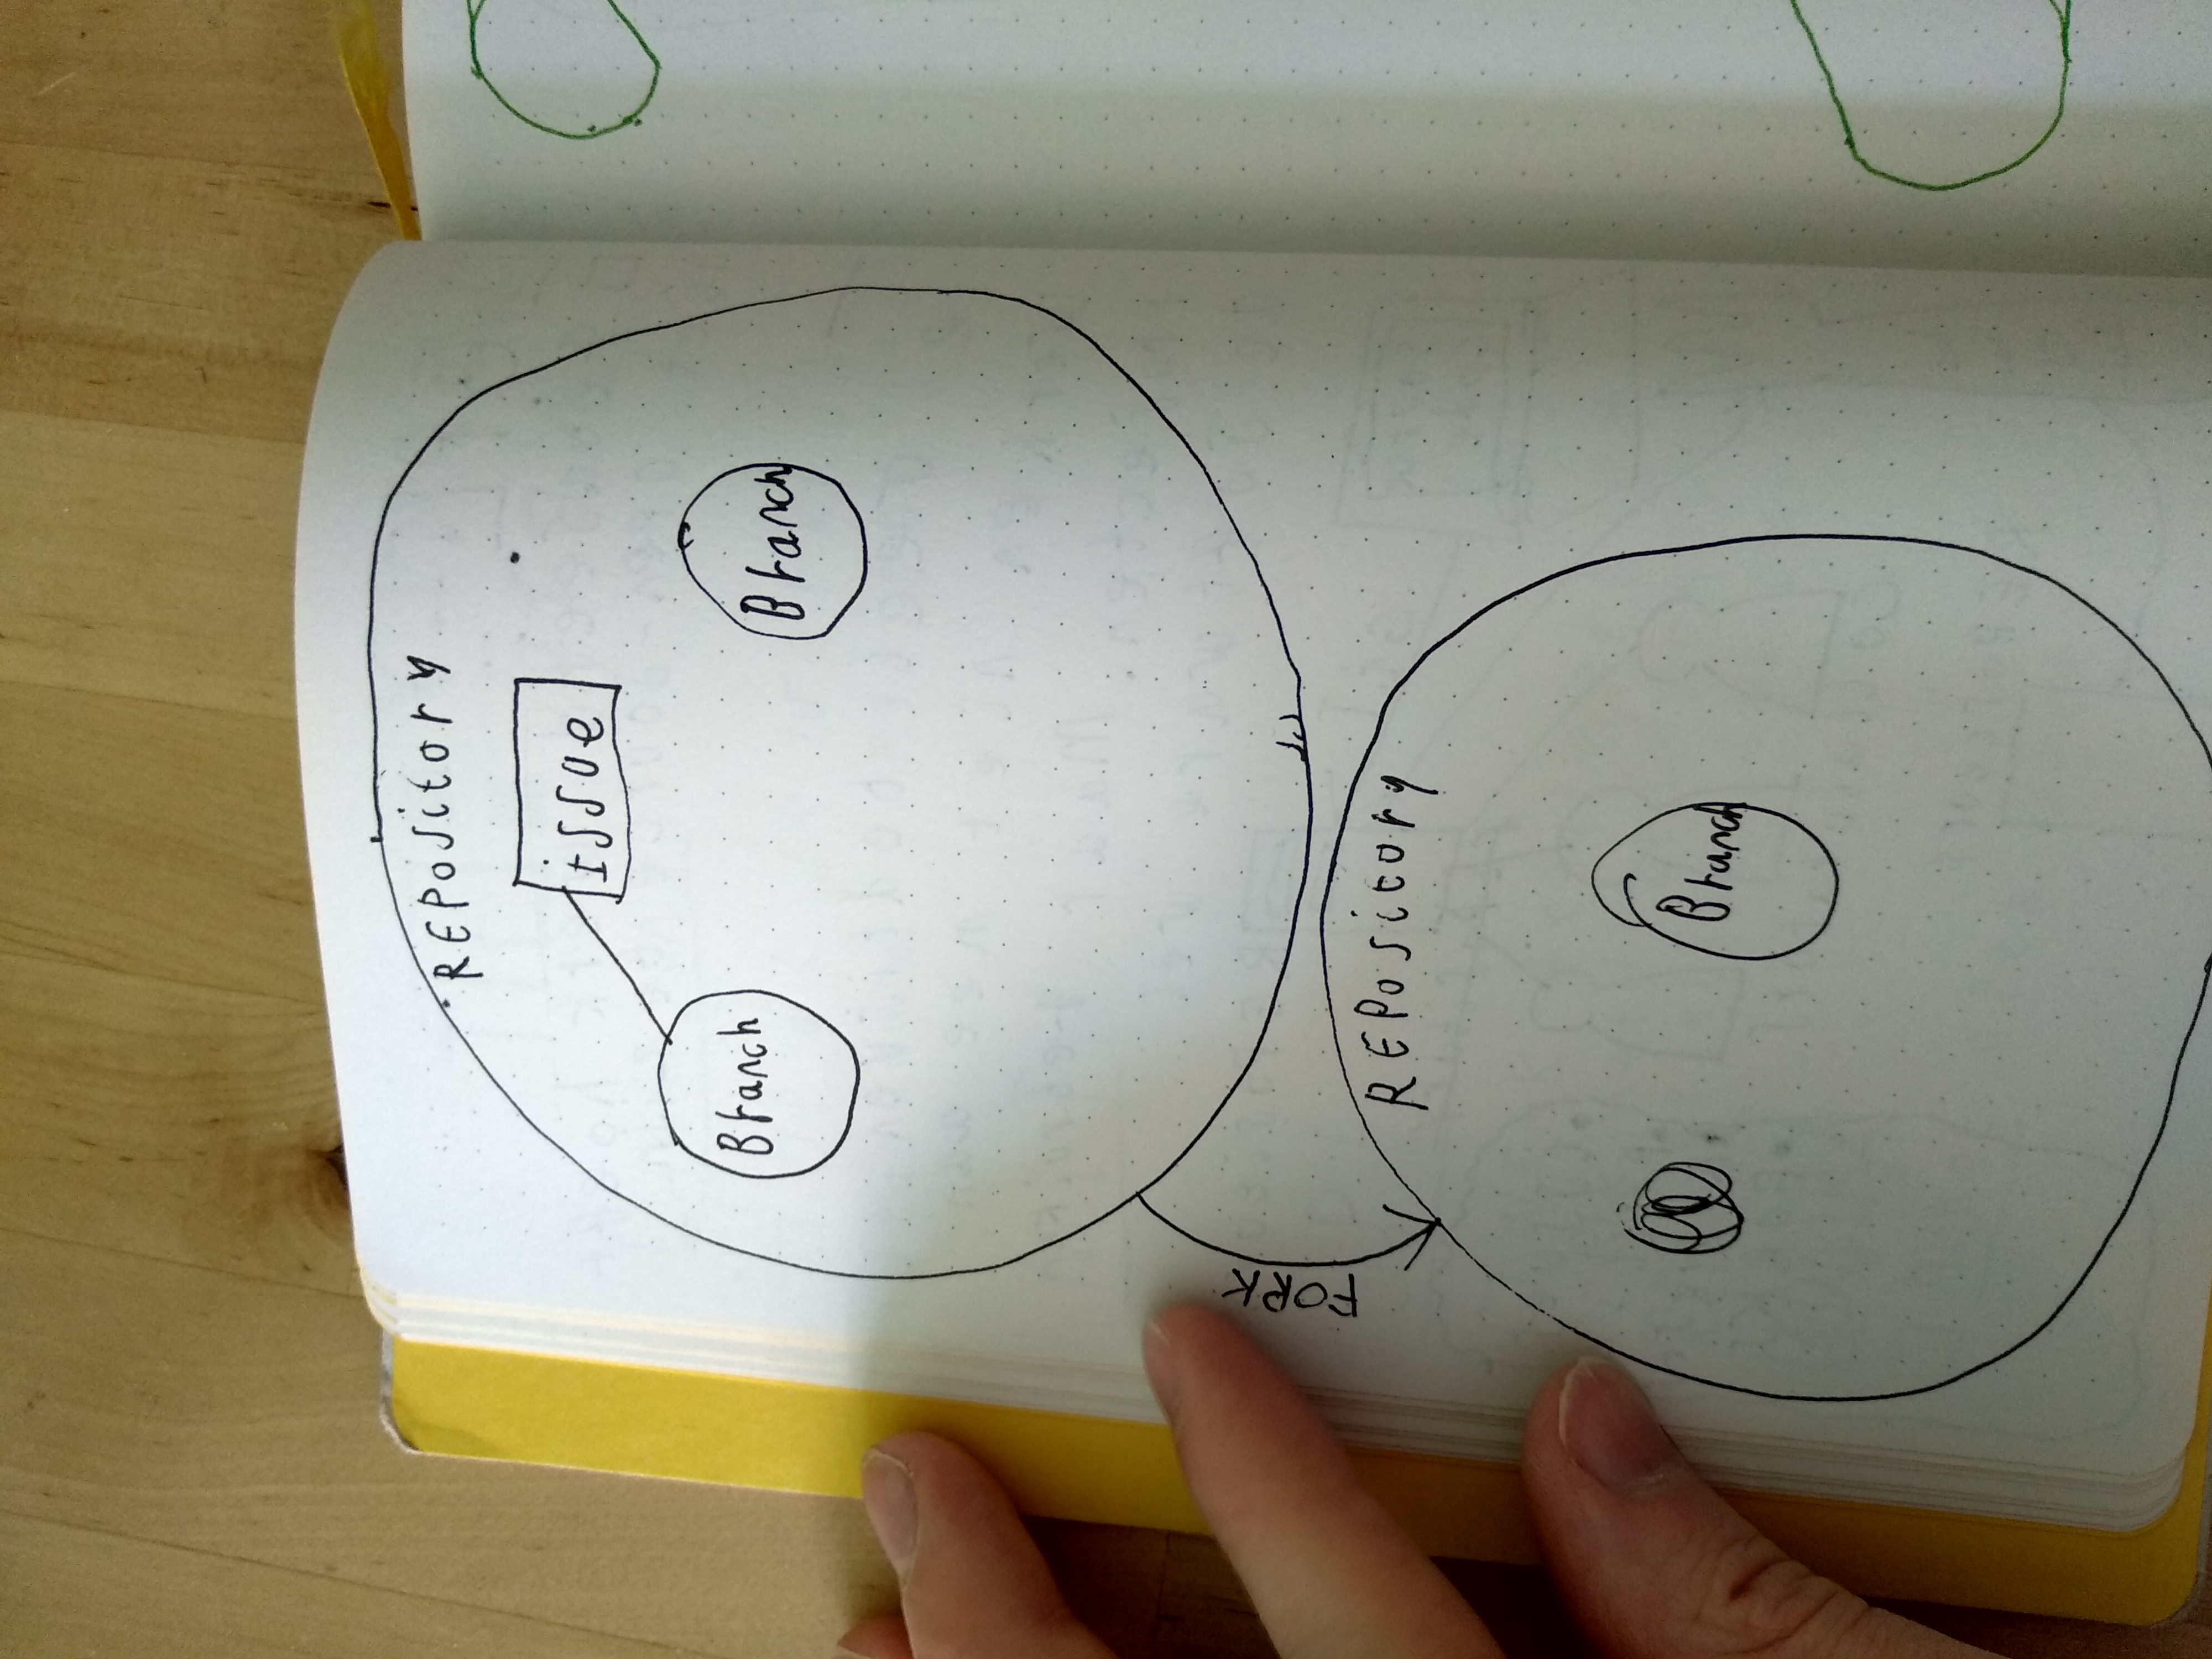 REPository
issue
Branch
Branch
FORK
REPository
Branch